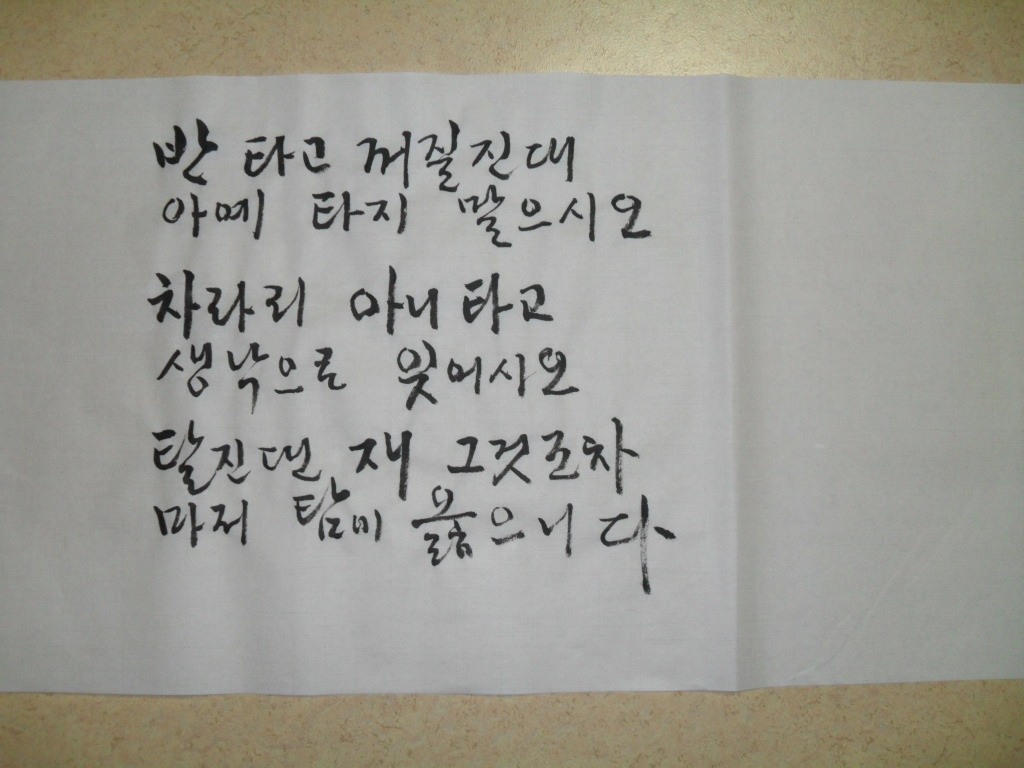 반 타고 꺼질진대
아예 타지 말으시오
차라리 아니 타고
생낙으로 잊어시오
탈진댄 재 그것조차
마저 탐미 옳으니다